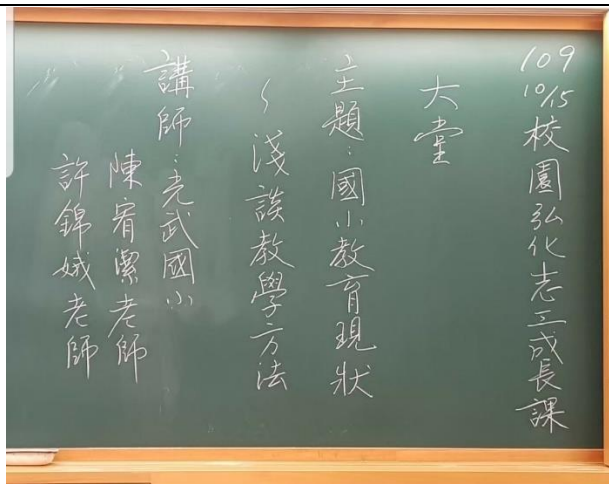 109
10/15校園弘化志工成長課
大堂
主題:國小教育現狀
~淺談教學方法
講師:光武國小
陳宥潔老師
許錦娥老師